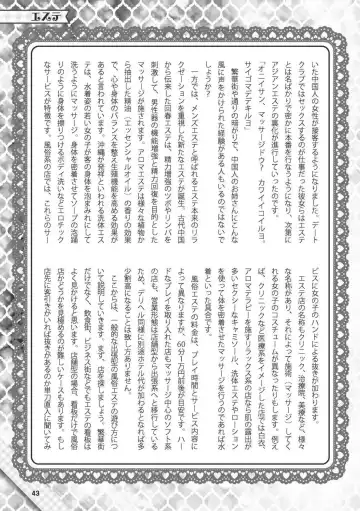 エステ
いた中国人の女性が接客するようになりました。デート
クラブではセックスするのが仕事だった彼女らはエステ
とは名ばかりで密かに本番を行なうようになり、次第に
アジアンエステの裏化が進行していったのです。
「オニイサン、マッサージドウ？ カワノイコイルヨ、
サイゴマデデキルヨ」
繁華街や通りの暗がりで、中国人のお姉さんにこんな
風に声をかけられた経験がある人もいるのではないで
しょうか？
一方では、メンズエステと呼ばれるエステ本来のリラ
クゼーションを重視した新たなエステが誕生。古代中国
から伝来した回春エステは、精力増強のツボやリンパを
刺激して、男性器の機能増強と精力回復を目的とした
マッサージが施されます。アロマエステは様々な植物か
ら抽出した精油（エッセンシャルオイル）の香りの効果
で、心や身体のバランスを整え生理機能を高める効能が
あると言われています。沖縄が発祥といわれる洗体エス
テは、水着姿の若い女の子が客の身体を泡まみれにして
洗いながらマッサージ、泡を密着させてソープの泡踊
りのように身体を擦りつけるボディ洗いなどエロチック
なサービスが特徴です。風俗系の店では、これらのサー
ビスに女の子のハンドによる抜きが加わります。
エステ店の名称もクリニック、治療院、美療など、様々
な名称があり、それによって施術（マッサージ）してく
れる女の子のコスチュームが異なったりもします。例え
ば、クリニックなど医療系をイメージした店では白衣、
アロマテラピーを施すリラックス系の店なら肌の露出が
多いセクシーなキャミソール、洗体エステやローション
を使って体を密着させたマッサージを行うのであれば水
着といった具合です。
風俗エステの料金は、プレイ時間とサービス内容に
よって異なりますが、60分1万円前後が目安です。ハー
ドなプレイが売りの人気店もマッサージ中心のソフト系
の店も、営業形態は店舗型から出張系へと移行している
ので、デリヘル同様に別途ホテル代が加わるとなれば多
少割高になる出費は致し方ありません。
ここからは、一般的な店舗型の風俗エステの遊び方につ
いて説明していきます。まず、店を探しましょう。繁華街
だけでなく、飲食街、ビジネス街などでもエステの看板は
よく見かけると思います。店舗型の場合、看板だけで風俗
店かどうかを見極めるのが難しいケースもあります。もし
店先に客引きがいれば抜きがあるのか単刀直入に聞いてみ
43